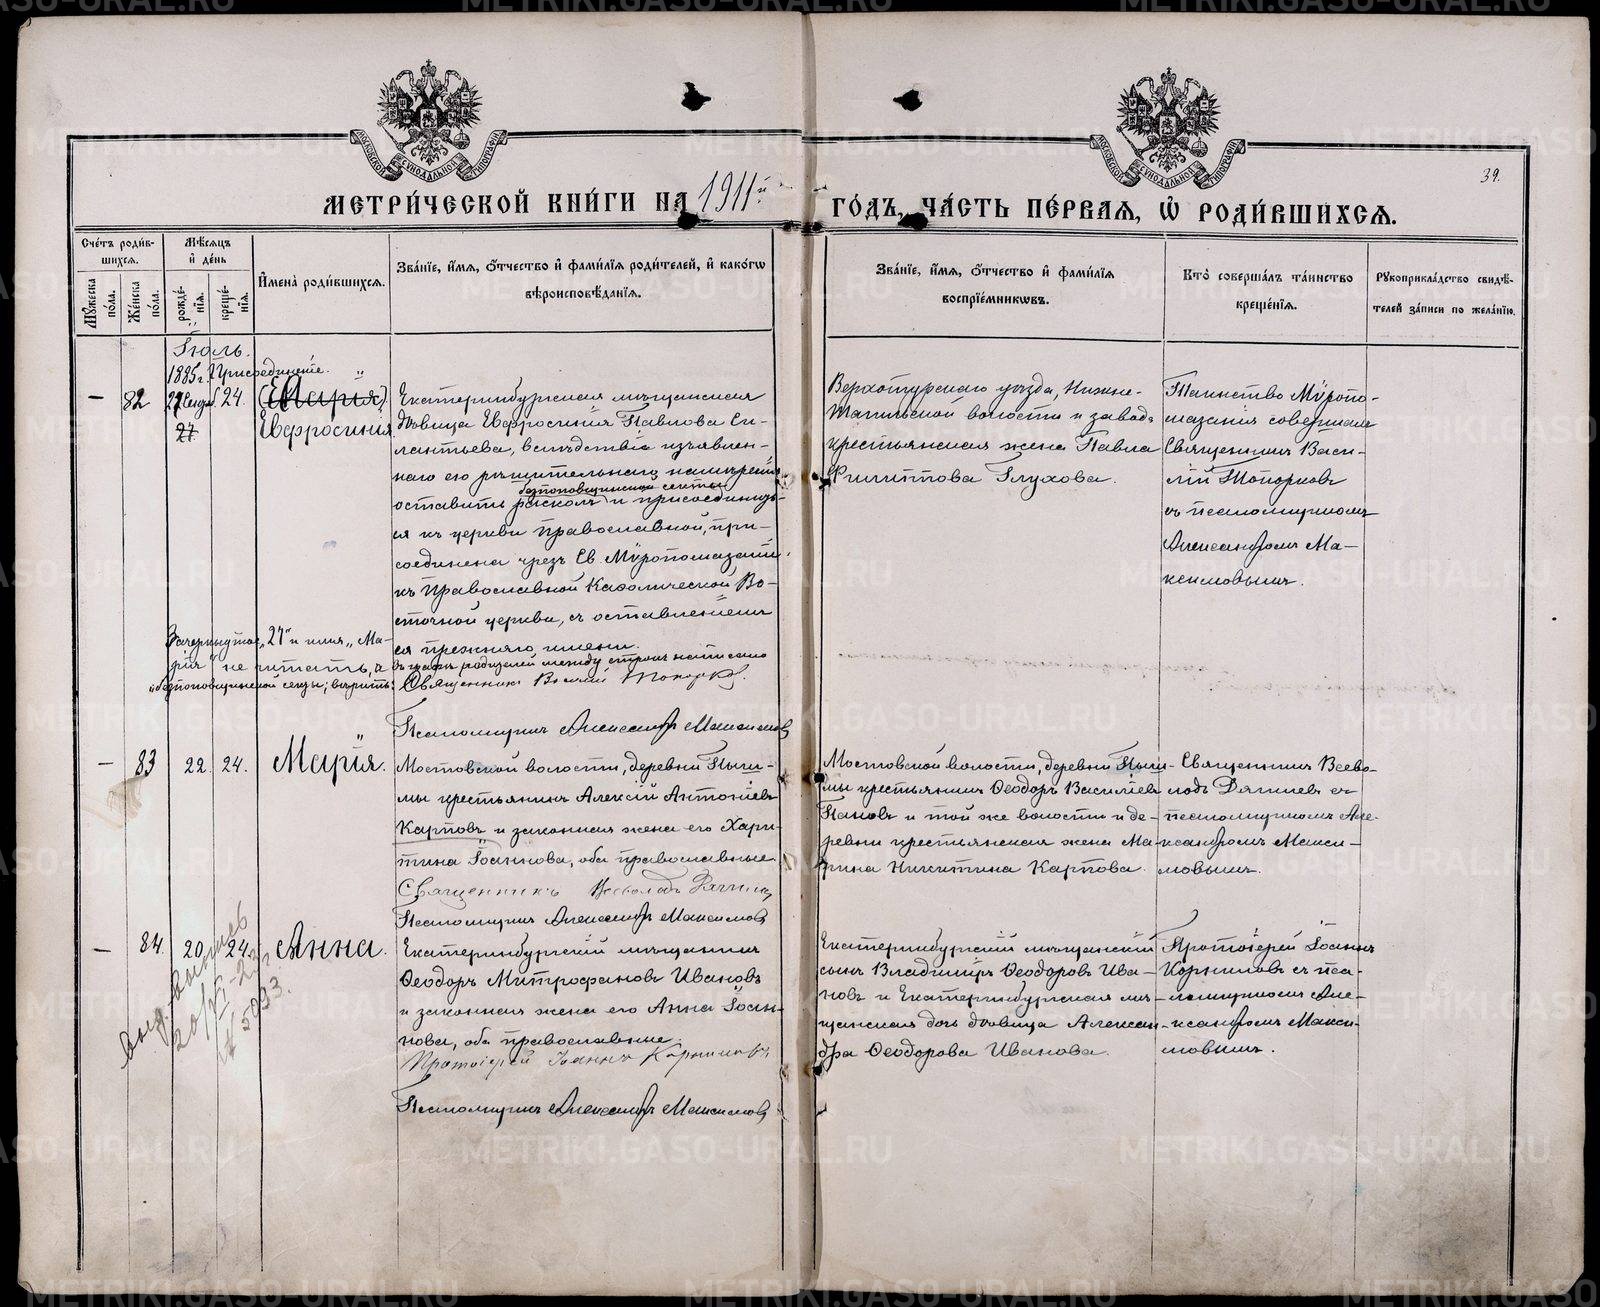 МЕТРИ́ЧЕСКОЙ КНИ́ГИ НА 1911й
ГО́ДЪ, ЧА́СТЬ ПЕ́РВАЯ, Ѡ҆ РОДИ́ВШИХСѦ.
39.
МОСКОВСКОЙ СѴНОДАЛЬНОЙ ТИПОГРАФІИ
МОСКОВСКОЙ СѴНОДАЛЬНОЙ ТИПОГРАФІИ
Сче́тъ роди́вшихсѧ.
Мꙋ́жеска по́ла.
Же́нска по́ла.
Мѣ́сѧцъ и҆ де́нь
рожде́нїѧ.
креще́нїѧ.
И҆мена̀ роди́вшихсѧ.
Зва́нїе, и҆́мѧ, ѻ҆́тчество и҆ фами́лїѧ роди́телей, и҆ како́гѡ
вѣроисповѣ́данїѧ.
Зва́нїе, и҆́мѧ, ѻ҆́тчество и҆ фами́лїѧ
воспрїе́мникѡвъ.
Кто̀ соверша́лъ та́инство
креще́нїѧ.
Рꙋкоприкла́дство свидѣ́-
телей за́писи по жела́нїю.
Іюль.
1885 г. Присоединеніе.
— 82 24. (Марія)
27
Евфросинія
Екатеринбургская мѣщанская
дѣвица Евфросинія Павлова Си-
лантьева, вслѣдствіе изъявлен-
наго ею рѣшительнаго намѣренія
безпоповщинской секты
оставить расколъ и присоединить-
ся къ церкви православной, при-
соединена чрезъ Св. Мѵропомазаніе
къ православной Каѳолической Во-
сточной церкви, съ оставленіемъ
ея прежняго имени.
Зачеркнутое „27“ и имя „Ма-
рія“ не читать, а въ графѣ родителей между строкъ написано
„безпоповщинской секты“, вѣрить:
Священникъ Василій Топорковъ.
Псаломщикъ Александръ Максимовъ
Верхотурскаго уѣзда, Нижне-
Тагильской волости и завода
крестьянская жена Павла
Филиппова Глухова.
Таинство Мѵропо-
мазанія совершалъ
Священникъ Васи-
лій Топорковъ
съ псаломщикомъ
Александромъ Ма-
ксимовымъ.
— 83 22. 24. Марія.
Мостовской волости, деревни Пыш-
мы крестьянинъ Алексій Антоніевъ
Карповъ и законная жена его Хари-
тина Іоаннова, оба православные.
Священникъ Всеволодъ
Псаломщикъ Александръ Максимовъ
Мостовской волости, деревни Пыш-
мы крестьянинъ Ѳеодоръ Василіевъ
Пановъ и той же волости и де-
ревни крестьянская жена Ма-
рина Никитина Карпова.
Священникъ Всево-
лодъ съ
псаломщикомъ Але-
ксандромъ Макси-
мовымъ.
— 84. 20. 24. Анна.
Екатеринбургскій мѣщанинъ
Ѳеодоръ Митрофановъ Ивановъ
и законная жена его Анна Іоан-
нова, оба православные.
Протоіерей Іоаннъ Корниловъ
Псаломщикъ Александръ Максимовъ
Екатеринбургскій мѣщанскій
сынъ Владиміръ Ѳеодоровъ Ива-
новъ и Екатеринбургская мѣ-
щанская дочь дѣвица Алексан-
дра Ѳеодорова Иванова.
Протоіерей Іоаннъ
Корниловъ съ пса-
ломщикомъ Але-
ксандромъ Макси-
мовымъ.
METRIKI.GASO-URAL.RU